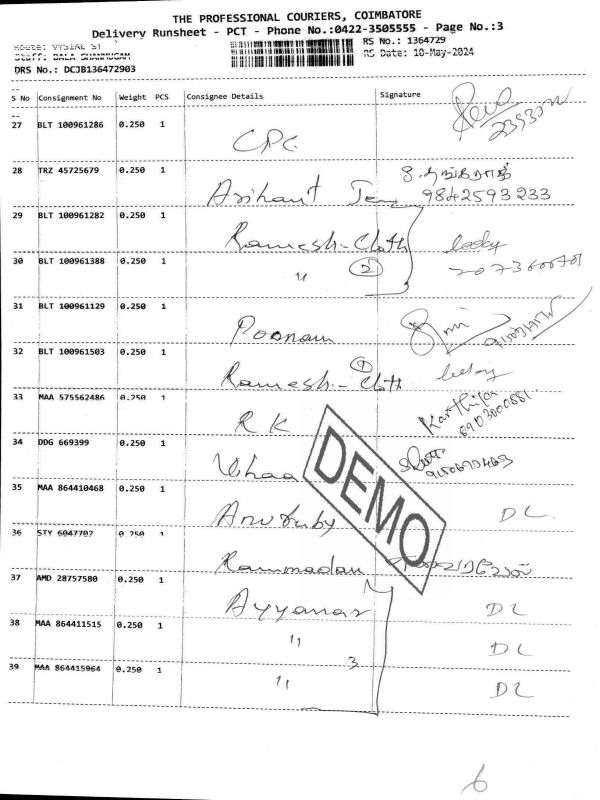 THE PROFESSIONAL COURIERS, COIMBATORE
Delivery Runsheet - PCT - Phone No.:0422-3505555 - Page No.:3
Route: VYSIAL ST
RS No.: 1364729
Staff: BALA SHANMUGAM
RS Date: 10-May-2024
DRS No.: DCJB136472903
S No Consignment No Weight PCS Consignee Details Signature
27 BLT 100961286 0.250 1 CPC
28 TRZ 45725679 0.250 1 Arihant
9842593233
29 BLT 100961282 0.250 1 Ramesh-Cloth
30 BLT 100961388 0.250 1 " 2
31 BLT 100961129 0.250 1 Poonam
32 BLT 100961503 0.250 1 Ramesh-Cloth 1
33 MAA 575562486 0.250 1 RK Karthika
8903000881
34 DDG 669399 0.250 1
35 MAA 864410468 0.250 1 DL
36 STY 6047702 0.250 1 Rammadan
37 AMD 28757580 0.250 1 Ayyanar DL
38 MAA 864411515 0.250 1 " DL
3
39 MAA 864415964 0.250 1 " DL
DEMO
6